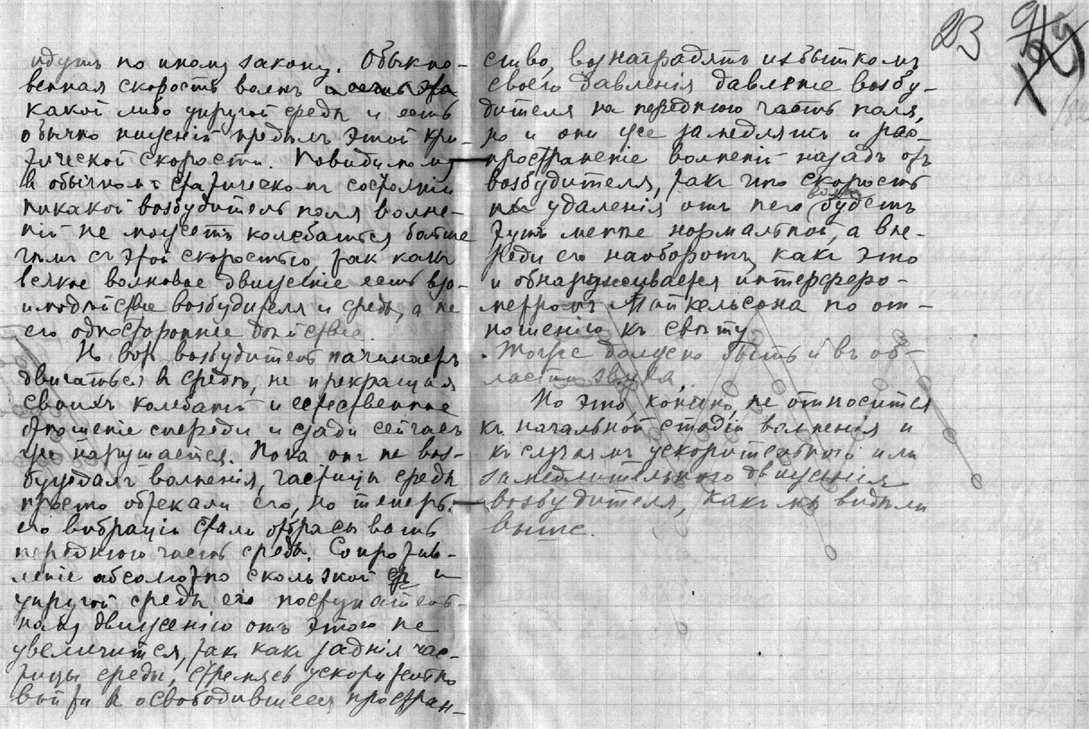 идутъ по иному закону. Обыкно-
венная скорость волнъ
какой либо упругой среды и есть
обычно низшій предѣлъ этой кри-
тической скорости. Повидимому,
въ обычномъ статическомъ состояніи
никакой возбудитель поля волне-
ній не можетъ колебаться больше
чѣмъ съ этой скоростью, такъ какъ
всякое волновое движеніе есть вза-
имодѣйствіе возбудителя и среды, а не
его одностороннее дѣйствіе.
Но вотъ возбудитель начинаетъ
двигаться въ средѣ, не прекращая
своихъ колебаній и естественное
отношеніе спереди и сзади сейчасъ
же нарушается. Пока онъ не воз-
буждалъ волненія, частицы среды
просто обтекали его, но теперь
его вибраціи стали отбрасывать
переднюю часть среды. Сопротив-
леніе абсолютно скользкой и
упругой среды его поступатель-
ному движенію отъ этого не
увеличится, такъ какъ заднія час-
тицы среды, стремясь ускорительно
войти въ освободившееся простран-
23
ство, вознаградятъ избыткомъ
своего давленія давленіе возбу-
дителя на переднюю часть поля,
но и они же замедлятъ и рас-
пространеніе волненій назадъ отъ
возбудителя, такъ что скорость
волнъ
удаленія отъ него будетъ
тутъ менѣе нормальной, а впе-
реди его наоборотъ, какъ это
и обнаруживается интерферо-
метромъ Майкельсона по от-
ношенію къ свѣту
Тоже должно быть и въ об-
ласти звука.
Но это, конечно, не относится
къ начальной стадіи волненія и
къ случаямъ ускорительнаго или
замедлительнаго движенія
возбудителя, какъ мы видѣли
выше.